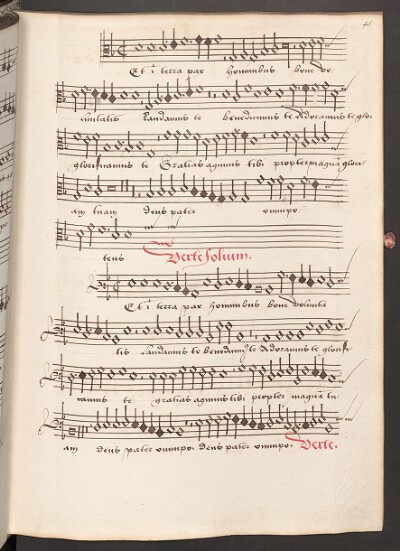 Et i terra pax hominibus bone vo
luntatis Laudamus te benedicimus te Adoramus te glo
glorificamus te Gratias agimus tibi propter magnā glori
am tuam deus pater omnipo
tens Verte folium.
Et i terra pax hominibus bone volunta
tis laudamus te Adoramus te glorifi
camus te gratias agimus tibi propter magnā tu
am deus pater omnipo. deus pater omnipo. Verte.